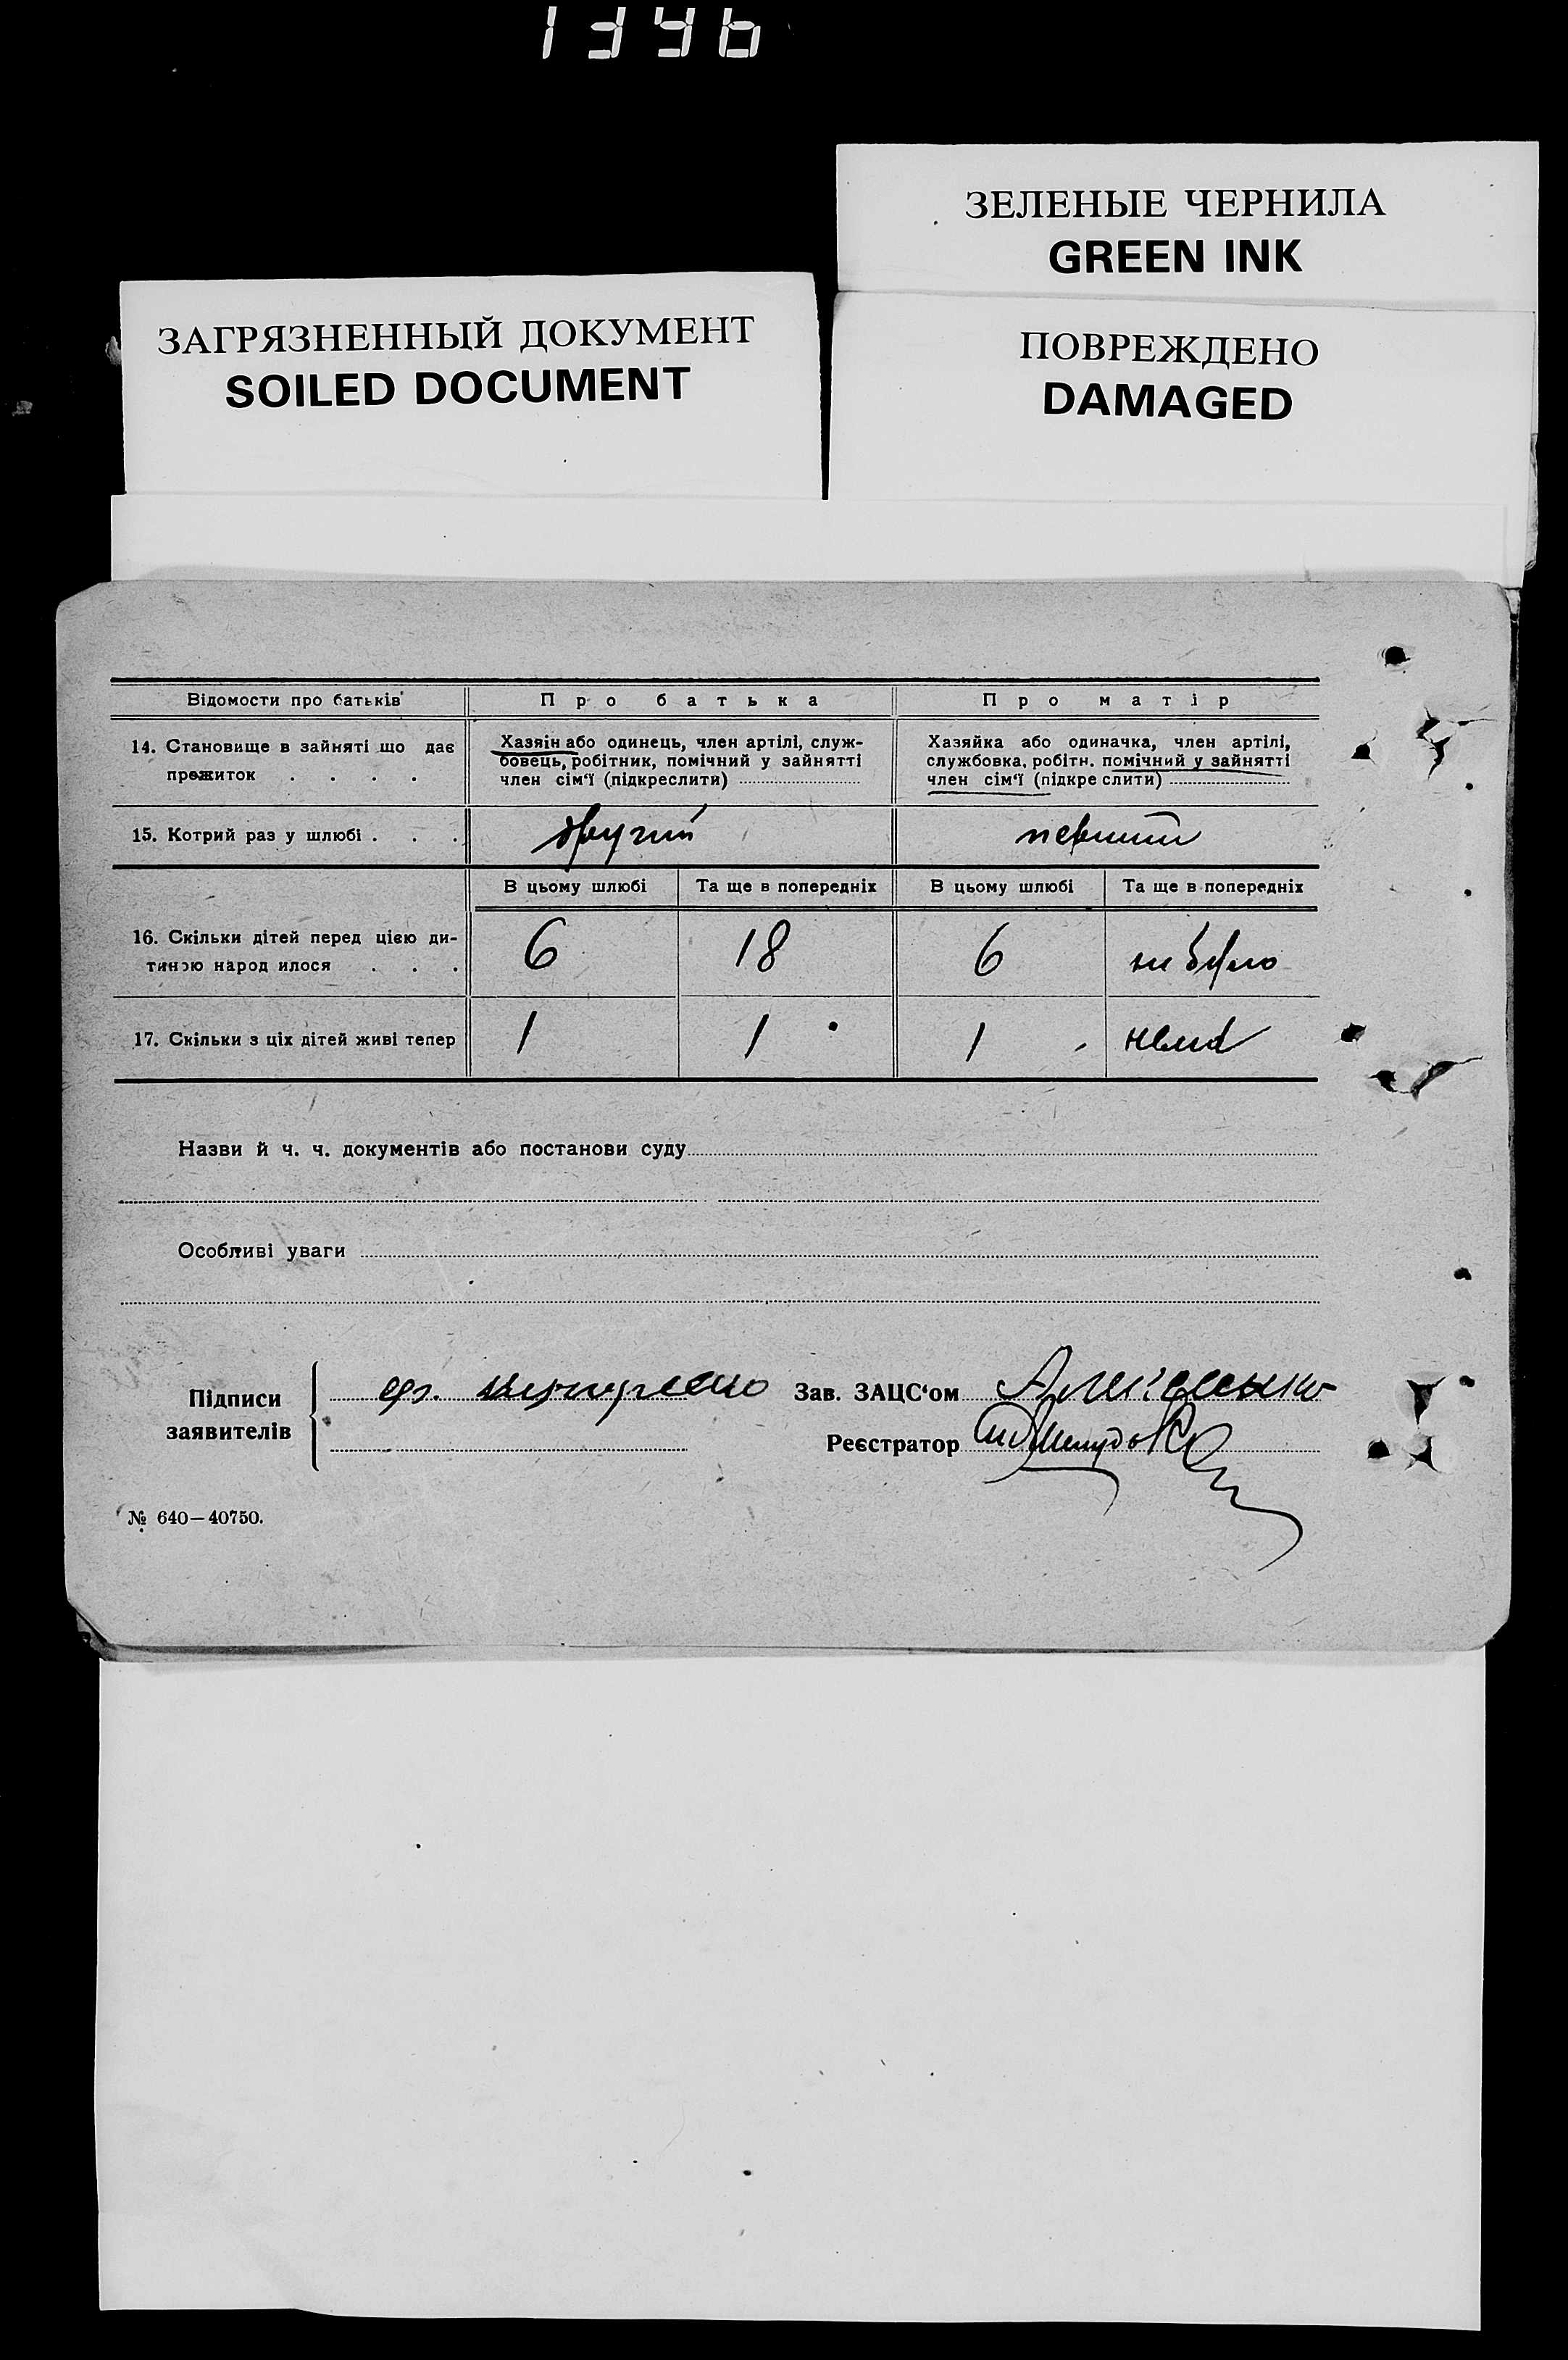 1346
ЗЕЛЕНЫЕ ЧЕРНИЛА
GREEN INK
ЗАГРЯЗНЕННЫЙ ДОКУМЕНТ
SOILED DOCUMENT
ПОВРЕЖДЕНО
DAMAGED
Відомости про батьків Про батька Про матір
14. Становище в зайняті що дає
прожиток . . . .
Хазяїн або одинець, член артілі, служ-
бовець, робітник, помічний у зайнятті
член сім'ї (підкреслити)
Хазяйка або одиначка, член артілі,
службовка, робітн. помічний у зайнятті
член сім'ї (підкреслити)
15. Котрий раз у шлюбі . . . другий первший
В цьому шлюбі Та ще в попередніх В цьому шлюбі Та ще в попередніх
16. Скільки дітей перед цією ди-
тиною народилося . . . 6 18 6 не було
17. Скільки з ціх дітей живі тепер 1 1 1 нема
Назви й ч. ч. документів або постанови суду
Особливі уваги
Підписи
заявителів
Зав. ЗАЦС'ом
Реєстратор
№ 640—40750.